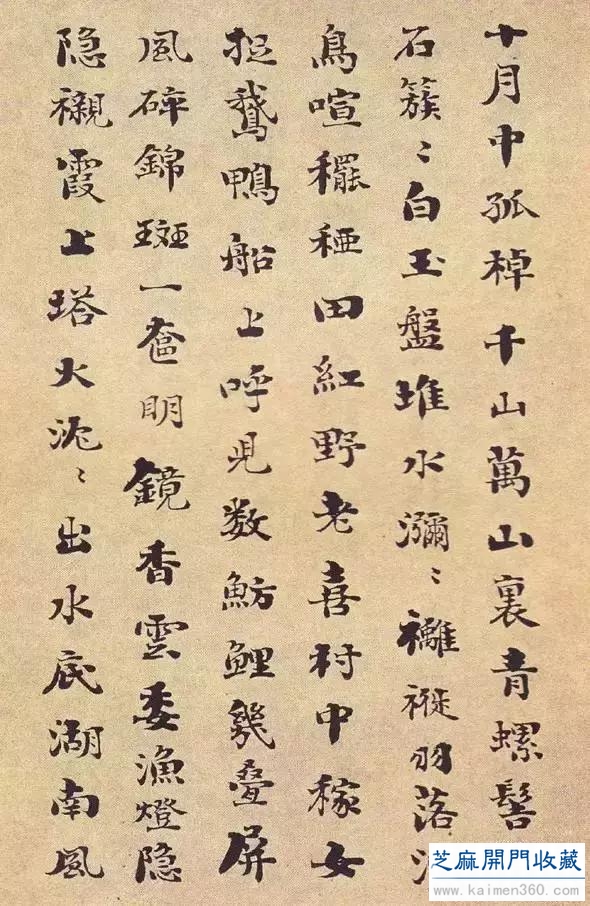 十月中孤棹千山萬山裏青螺髻
石簇〻白玉盤堆水瀰〻䙰褷羽落
鳥喧穲稏田紅野老喜村中稼女
捉鵝鴨船上呼児数魴鯉幾疊屏
風碎錦斑一奩明鏡香雲委漁燈隐
隐襯霞上塔火泥〻出水底湖南風
芝麻開門收藏
www.kaimen360.com